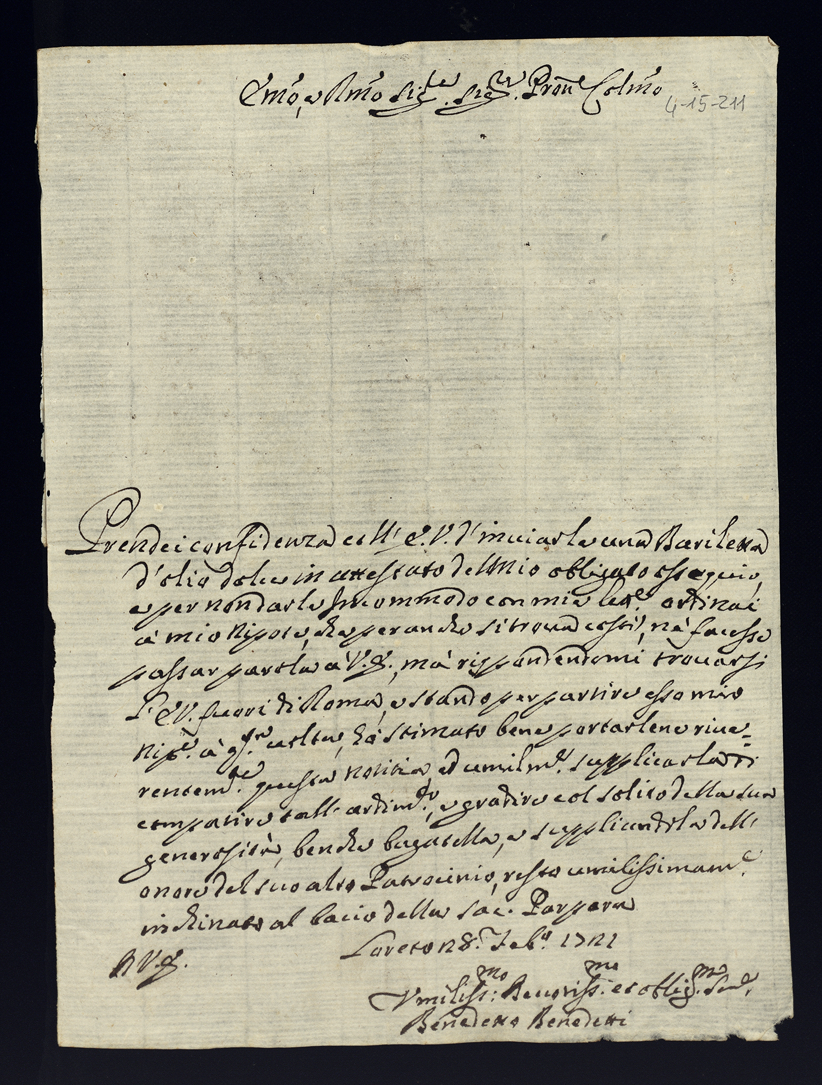 Emo, e Rmo Sigre. Sigre. Pron Colmo
4-15-211
Prendei confidenza coll' E.V. d'inviarle una Bariletta
d'olio dolce in attestato del mio obligato ossequio,
e per non darle Incommodo con mie ordinai
à mio Nipote, che per anche si trova costì, ne facesse
passar parola à V.E., mà rispondendomi trovarsi
l'EV. fuori di Roma, e stando per partire esso mio
Nipe. à volta, hà stimato bene portarlene rive=
rentemte. questa notitia, ed umilme. supplicarla di
compatire tall' ardimto, e gradire col solito della sua
generosità, benche bagatella, e supplicandola dell'
onore del suo alto Patrocinio, resto umilissimame.
inchinato al bacio della Sac. Porpora
Loreto 28. Febo. 1721
A V.E.
Vmilissmo: Devotissmo. et obligmo. Serve.
Benedetto Benedetti